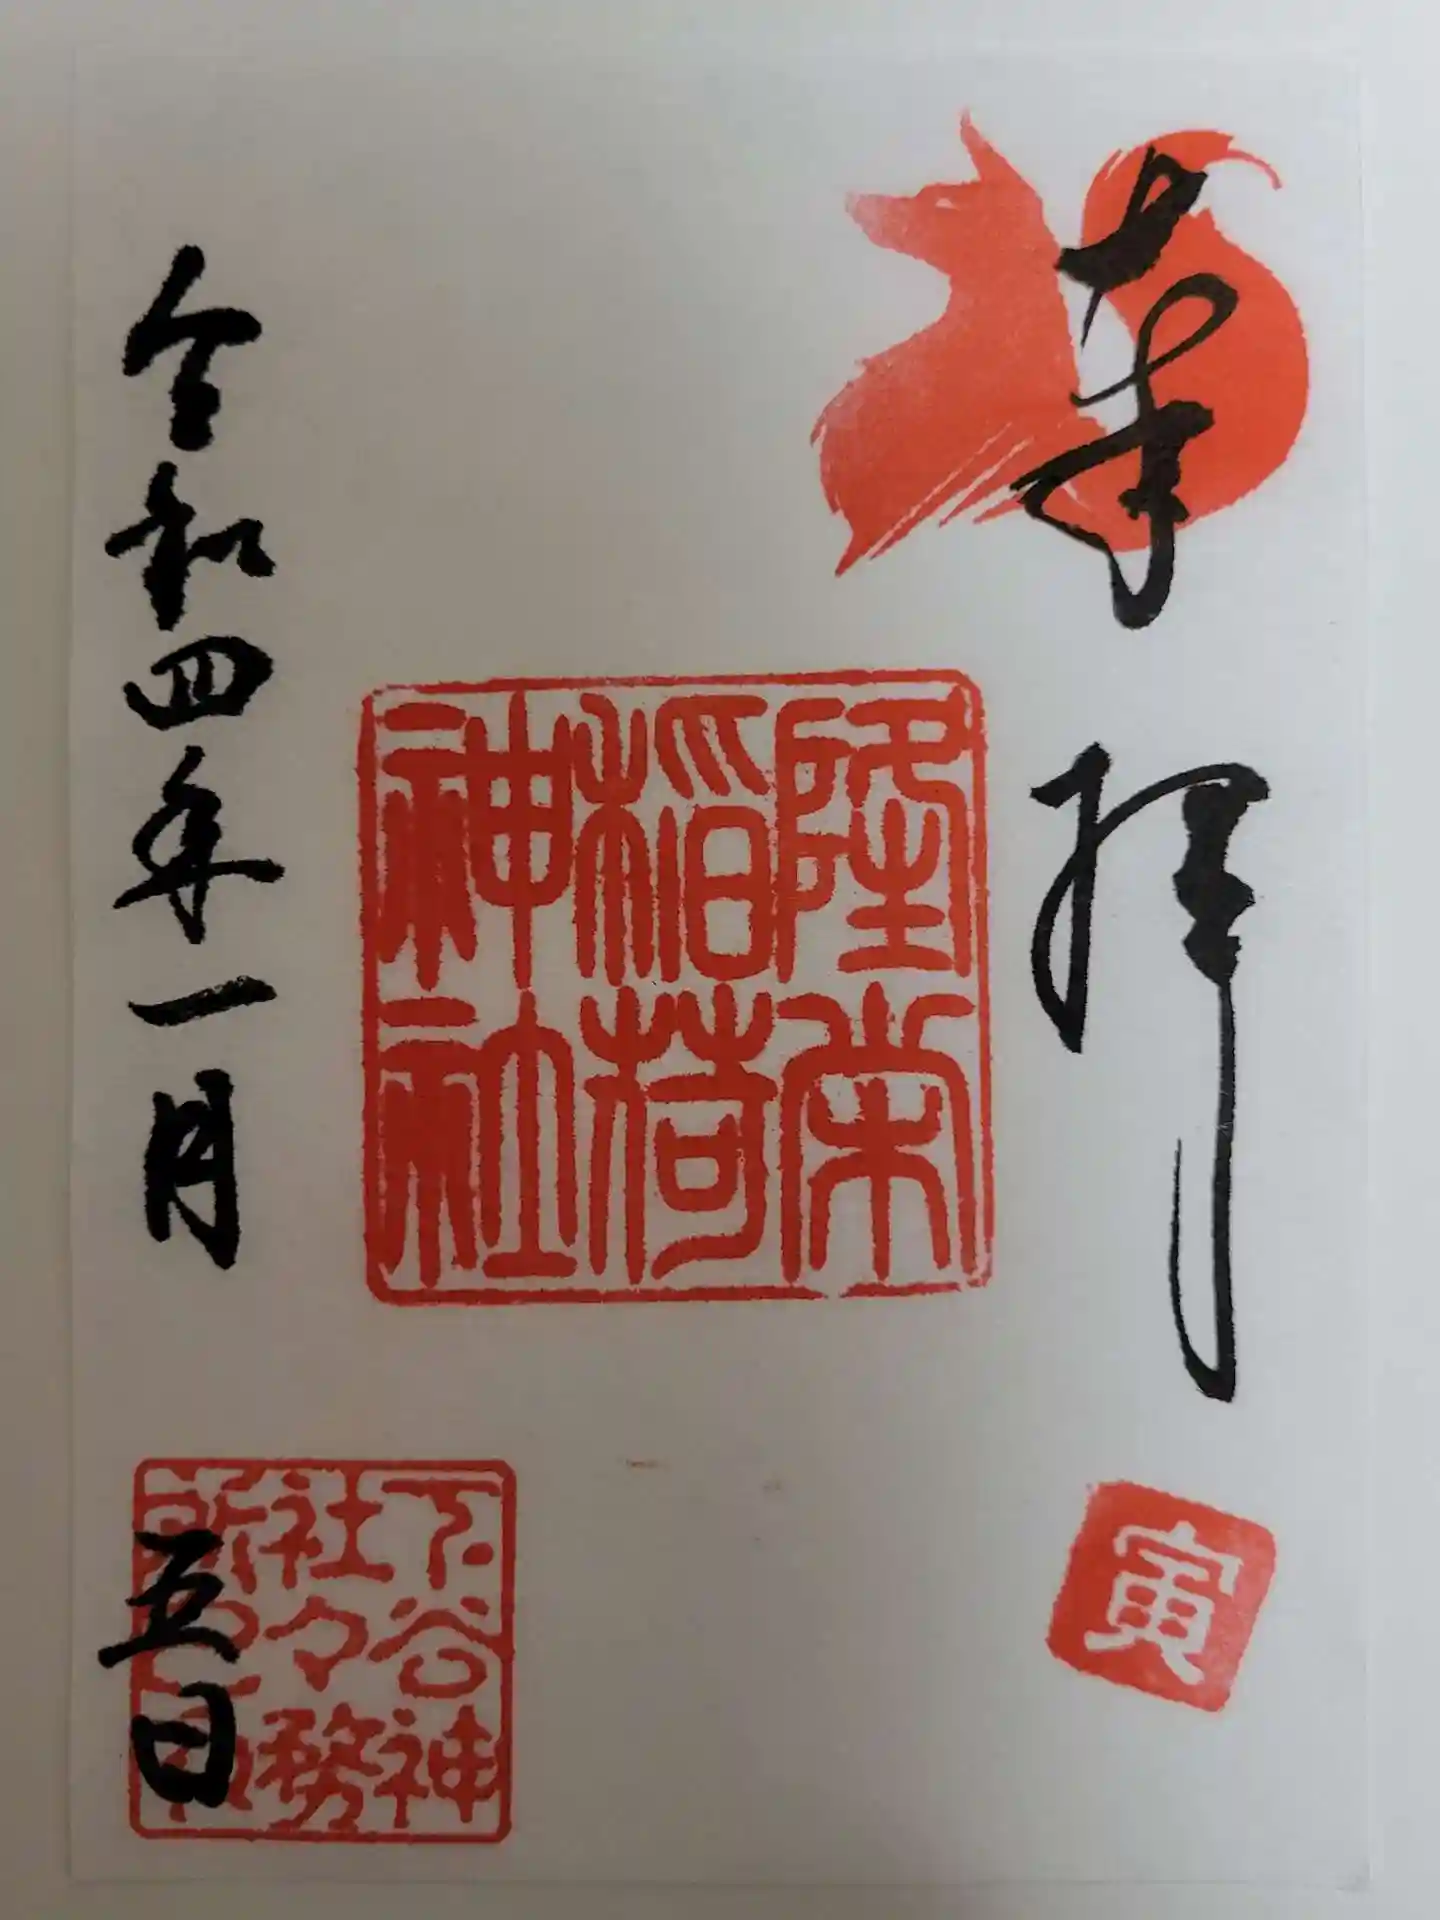 奉拝
寅
隆栄
稲荷
神社
令和四年一月
五日
下谷神
社々務
所之印